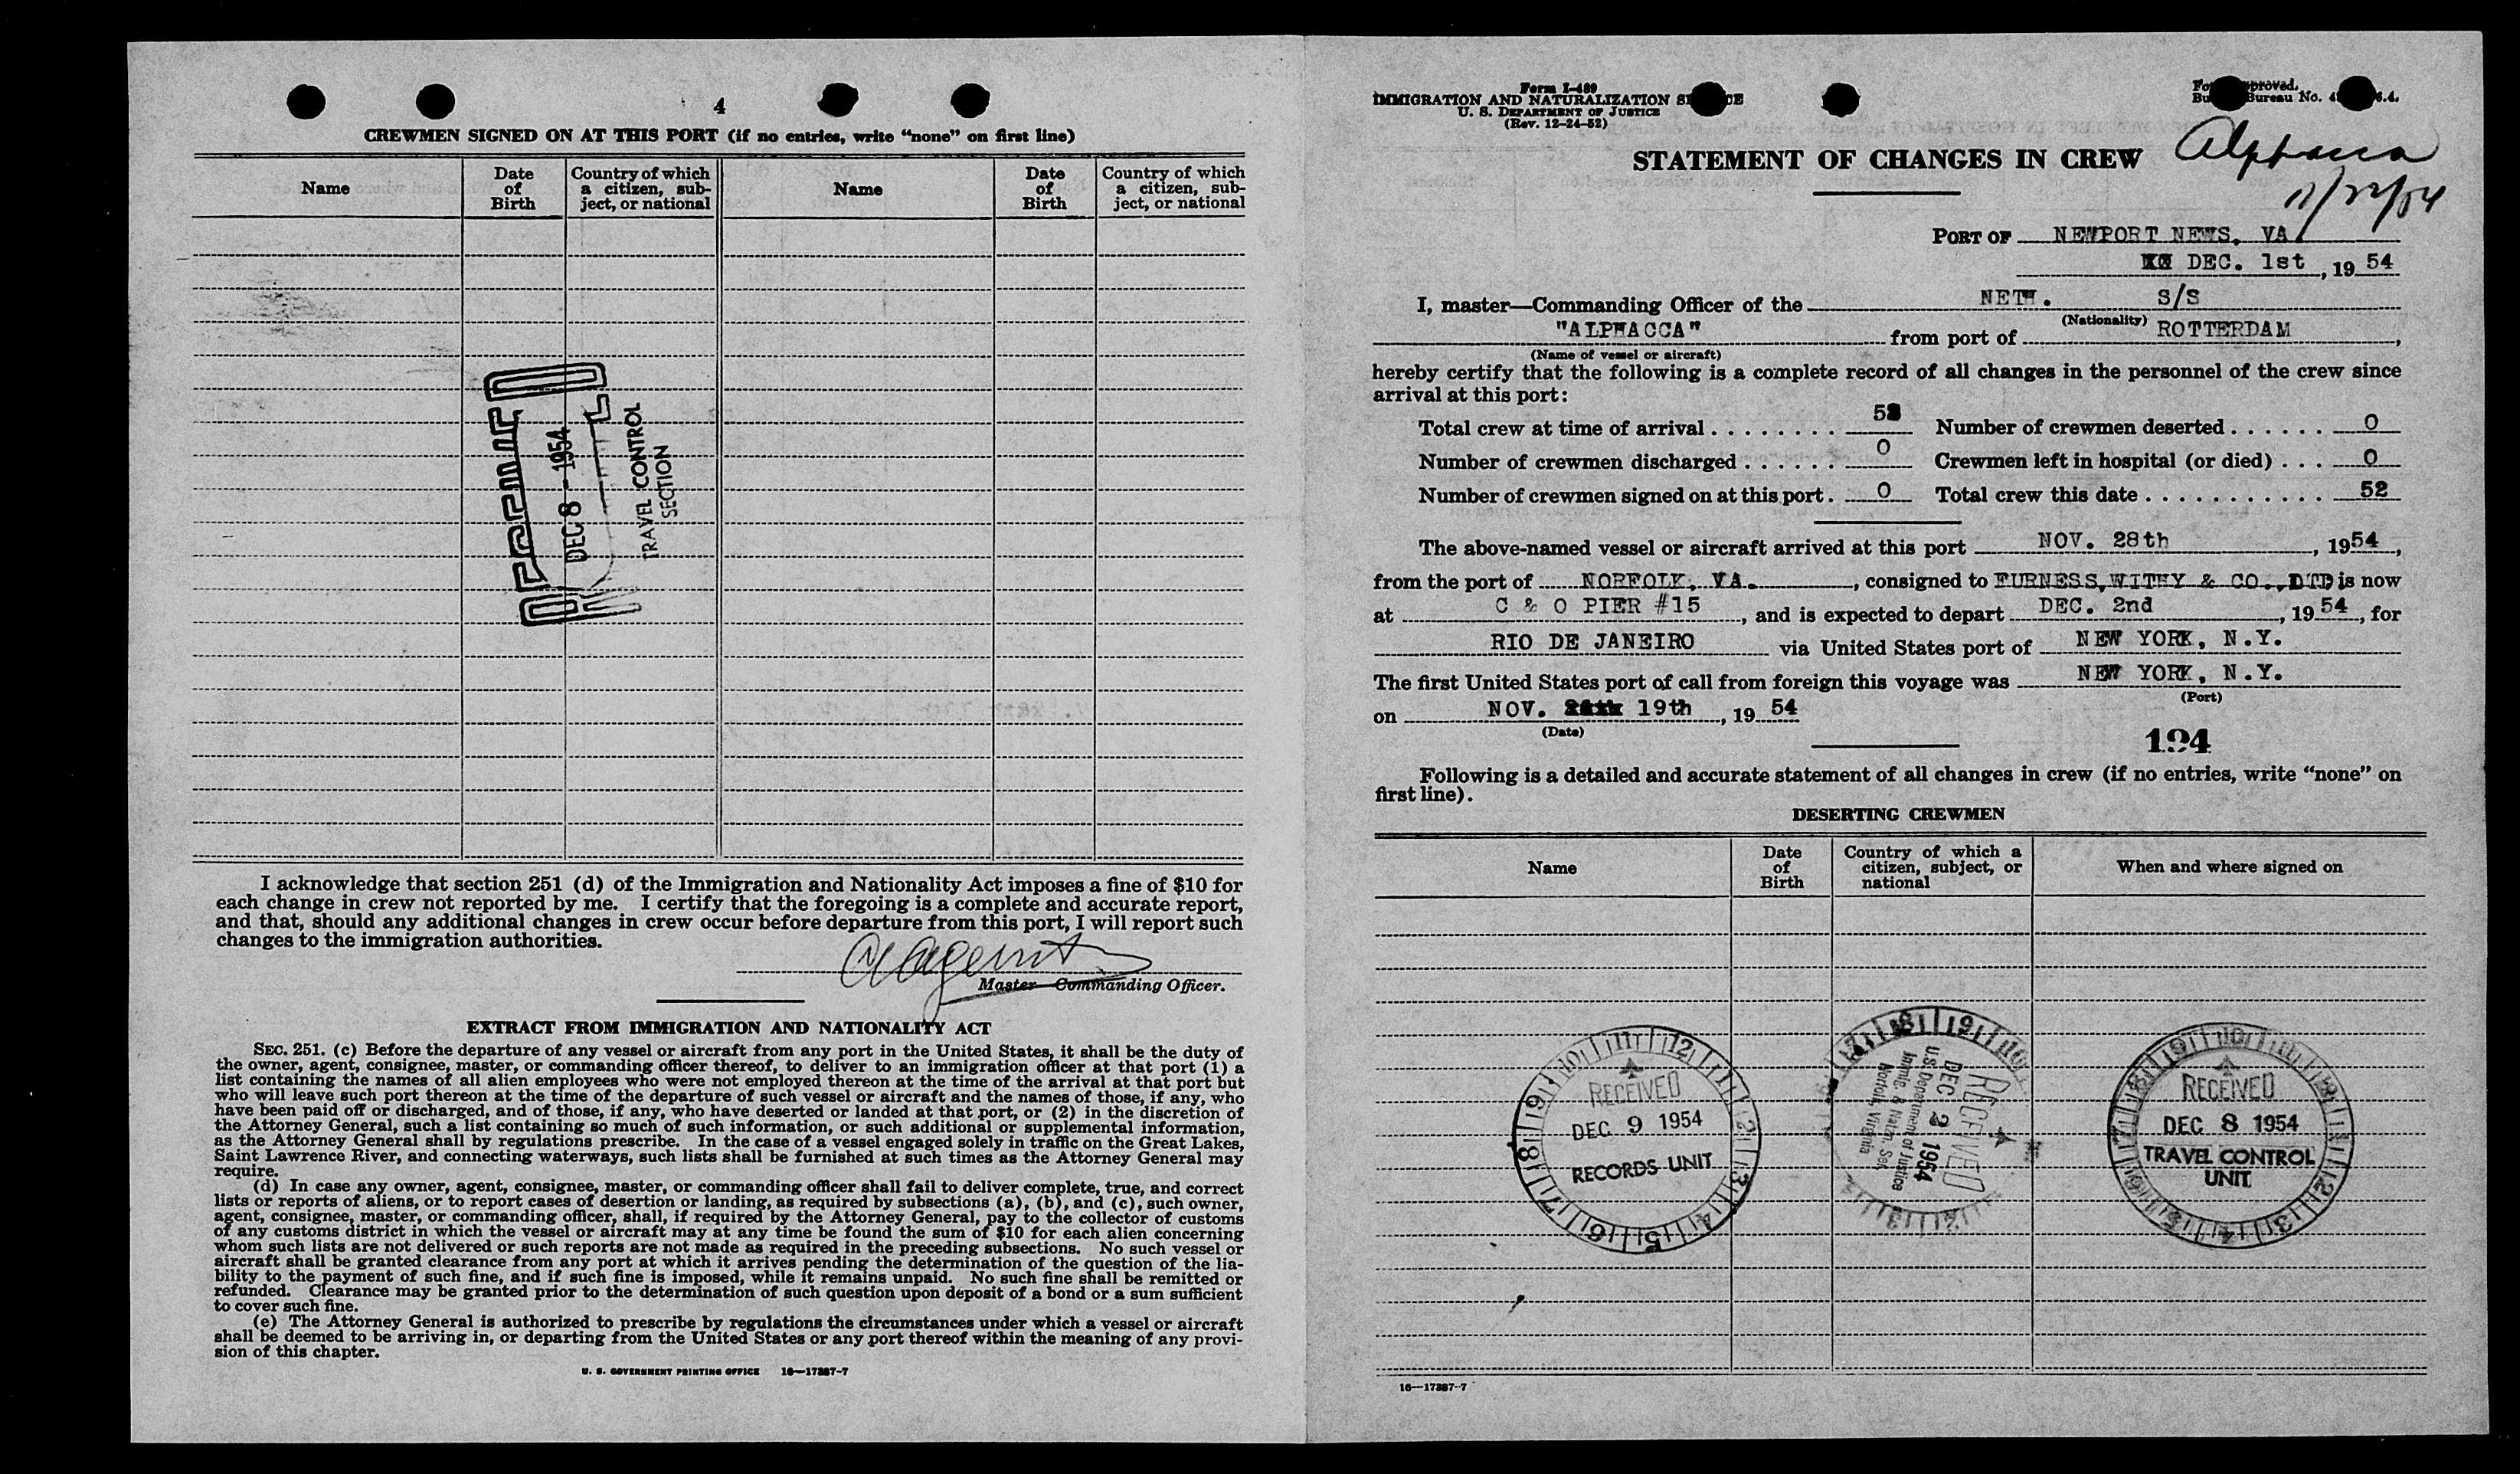 4
CREWMEN SIGNED ON AT THIS PORT (if no entries, write “none” on first line)
Name
Date of Birth
Country of which a citizen, sub-ject, or national
Name
Date of Birth
Country of which a citizen, sub-ject, or national
RECEIVED
DEC 8 - 1954
TRAVEL CONTROL
SECTION
I acknowledge that section 251 (d) of the Immigration and Nationality Act imposes a fine of $10 for
each change in crew not reported by me. I certify that the foregoing is a complete and accurate report,
and that, should any additional changes in crew occur before departure from this port, I will report such
changes to the immigration authorities.
Master—Commanding Officer.
EXTRACT FROM IMMIGRATION AND NATIONALITY ACT
SEC. 251. (c) Before the departure of any vessel or aircraft from any port in the United States, it shall be the duty of
the owner, agent, consignee, master, or commanding officer thereof, to deliver to an immigration officer at that port (1) a
list containing the names of all alien employees who were not employed thereon at the time of the arrival at that port but
who will leave such port thereon at the time of the departure of such vessel or aircraft and the names of those, if any, who
have been paid off or discharged, and of those, if any, who have deserted or landed at that port, or (2) in the discretion of
the Attorney General, such a list containing so much of such information, or such additional or supplemental information,
as the Attorney General shall by regulations prescribe. In the case of a vessel engaged solely in traffic on the Great Lakes,
Saint Lawrence River, and connecting waterways, such lists shall be furnished at such times as the Attorney General may
require.
(d) In case any owner, agent, consignee, master, or commanding officer shall fail to deliver complete, true, and correct
lists or reports of aliens, or to report cases of desertion or landing, as required by subsections (a), (b), and (c), such owner,
agent, consignee, master, or commanding officer, shall, if required by the Attorney General, pay to the collector of customs
of any customs district in which the vessel or aircraft may at any time be found the sum of $10 for each alien concerning
whom such lists are not delivered or such reports are not made as required in the preceding subsections. No such vessel or
aircraft shall be granted clearance from any port at which it arrives pending the determination of the question of the lia-
bility to the payment of such fine, and if such fine is imposed, while it remains unpaid. No such fine shall be remitted or
refunded. Clearance may be granted prior to the determination of such question upon deposit of a bond or a sum sufficient
to cover such fine.
(e) The Attorney General is authorized to prescribe by regulations the circumstances under which a vessel or aircraft
shall be deemed to be arriving in, or departing from the United States or any port thereof within the meaning of any provi-
sion of this chapter.
U. S. GOVERNMENT PRINTING OFFICE 16—17387-7
Form I-489
IMMIGRATION AND NATURALIZATION
U. S. DEPARTMENT OF JUSTICE
(Rev. 12-24-52)
Bureau No.
STATEMENT OF CHANGES IN CREW
11/22/54
PORT OF NEWPORT NEWS, VA
DEC. 1st, 19 54
I, master—Commanding Officer of the NETH. S/S
(Nationality)
"ALPHACCA" from port of ROTTERDAM,
(Name of vessel or aircraft)
hereby certify that the following is a complete record of all changes in the personnel of the crew since
arrival at this port:
Total crew at time of arrival . . . . . . . . 52 Number of crewmen deserted . . . . . . 0
Number of crewmen discharged . . . . . . 0 Crewmen left in hospital (or died) . . . 0
Number of crewmen signed on at this port . 0 Total crew this date . . . . . . . . . . . . 52
The above-named vessel or aircraft arrived at this port NOV. 28th, 1954,
from the port of NORFOLK, VA., consigned to FURNESS, WITHY & CO., LTD is now
at C & O PIER #15, and is expected to depart DEC. 2nd, 19 54, for
RIO DE JANEIRO via United States port of NEW YORK, N.Y.
The first United States port of call from foreign this voyage was NEW YORK, N.Y.
(Port)
on NOV. 19th, 19 54
(Date)
194
Following is a detailed and accurate statement of all changes in crew (if no entries, write “none” on
first line).
DESERTING CREWMEN
Name
Date of Birth
Country of which a citizen, subject, or national
When and where signed on
RECEIVED
DEC 9 1954
RECORDS UNIT
RECEIVED
DEC 2 1954
U.S. Department of Justice
Immig. & Natzn. Ser.
Norfolk, Virginia
RECEIVED
DEC 8 1954
TRAVEL CONTROL
UNIT
16—17387-7